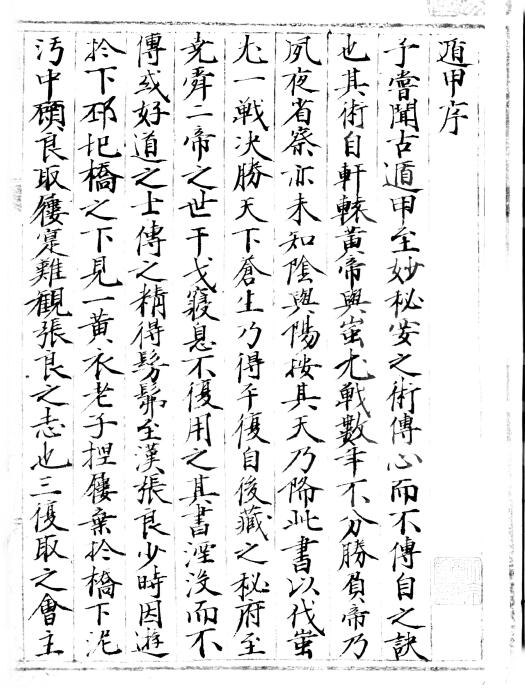 遁甲序
予嘗聞古遁甲至妙秘安之術傳心而不傳自之訣
也其術自軒轅黃帝與蚩尤戰數年不分勝負帝乃
夙夜省察亦未知陰與陽按其天乃降此書以伐蚩
尤一戰决勝天下蒼生乃得平復自後藏之秘府至
堯舜二帝之世干戈寢息不復用之其書湮沒而不
傳或好道之士傳之精得髣髴至漢張良少時因遊
於下邳圯橋之下見一黃衣老子捏䩕棄於橋下泥
汚中顧良取䩕寔難觀張良之志也三復取之會主